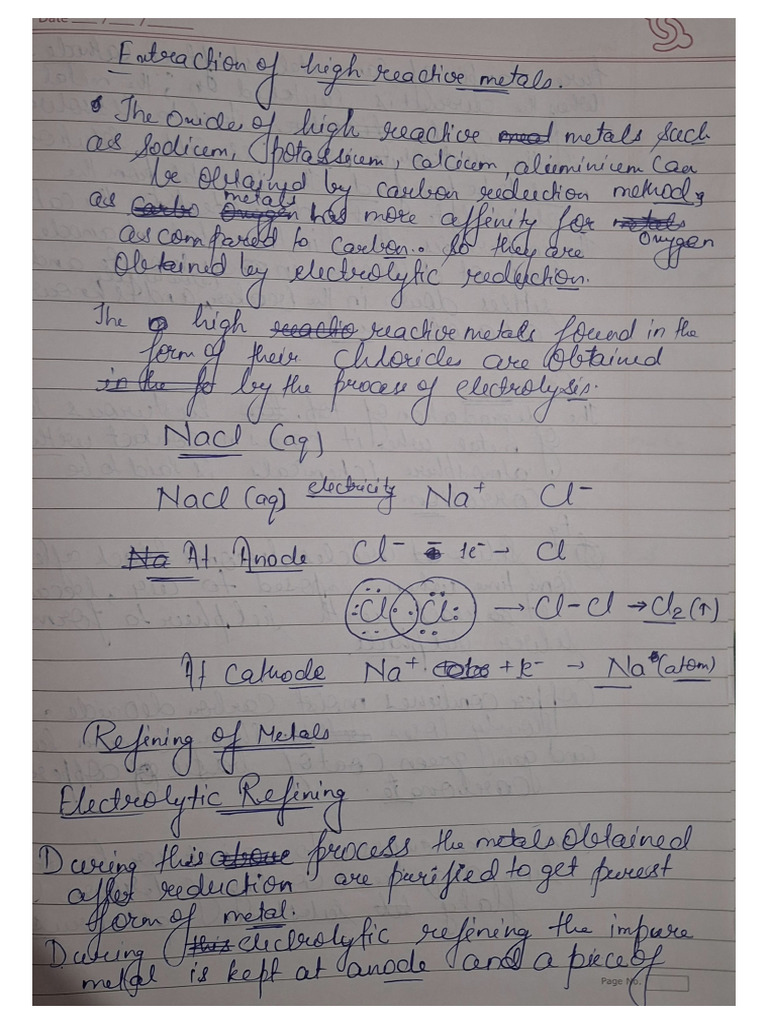 Date ___/___/___
Extraction of high reactive metals.
The oxide of high reactive metals such
as sodium, potassium, calcium, aluminium can
be obtained by carbon reduction method,
as metals has more affinity for oxygen
as compared to carbon. So they are
obtained by electrolytic reduction.
The high reactive metals found in the
form of their chlorides are obtained
by the process of electrolysis.
Nacl (aq)
Nacl (aq) electricity Na⁺ Cl⁻
At Anode Cl⁻ - 1e⁻ → Cl
Cl Cl → Cl-Cl → Cl₂(↑)
At Cathode Na⁺ + 1e⁻ → Na (atom)
Refining of Metals
Electrolytic Refining
During this process the metals obtained
after reduction are purified to get purest
form of metal.
During electrolytic refining the impure
metal is kept at anode and a piece of
Page No.